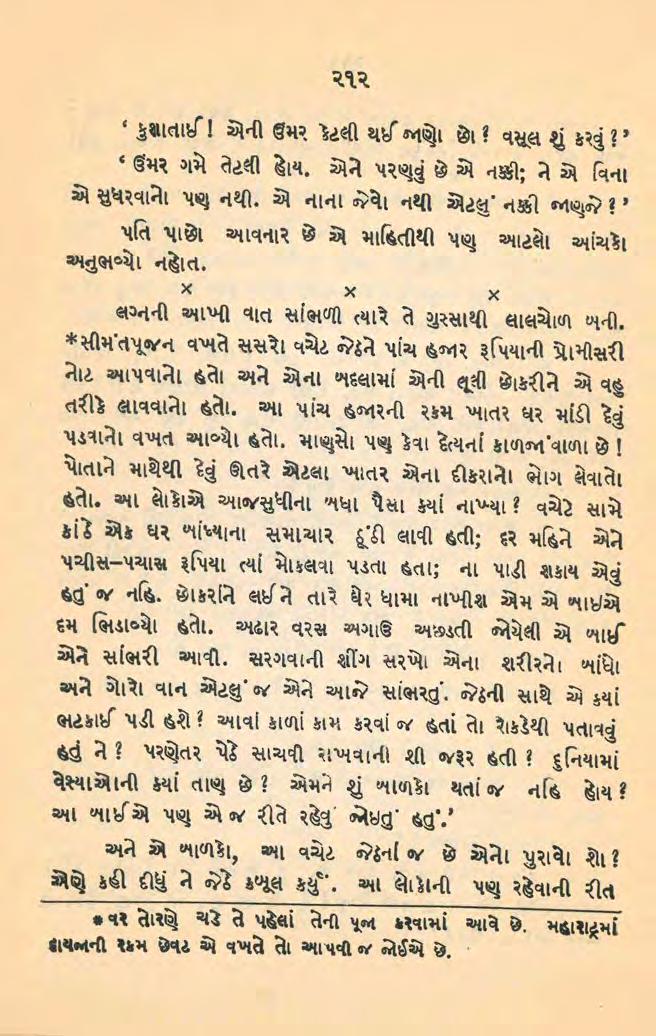 ૨૧૨
‘ કુશાતાઈ! એની ઉમર કેટલી થઈ જાણો છો? વસૂલ શું કરવું?’
‘ ઉંમર ગમે તેટલી હોય. એને પરણવું છે એ નક્કી; ને એ વિના
એ સુધરવાનો પણ નથી. એ નાના જેવો નથી એટલું નક્કી જાણજે?’
પતિ પાછો આવનાર છે એ માહિતીથી પણ આટલો આંચકો
અનુભવ્યો નહોત.
× × ×
લગ્નની આખી વાત સાંભળી ત્યારે તે ગુસ્સાથી લાલચોળ બની.
*સીમંતપૂજન વખતે સસરો વચેટ જેઠને પાંચ હજાર રૂપિયાની પ્રોમીસરી
નોટ આપવાનો હતો અને એના બદલામાં એની લૂલી છોકરીને એ વહુ
તરીકે લાવવાનો હતો. આ પાંચ હજારની રકમ ખાતર ઘર માંડી દેવું
પડવાનો વખત આવ્યો હતો. માણસો પણ કેવા દૈત્યનાં કાળજાંવાળા છે!
પોતાને માથેથી દેવું ઊતરે એટલા ખાતર એના દીકરાનો ભોગ લેવાતો
હતો. આ લોકોએ આજસુધીના બધા પૈસા ક્યાં નાખ્યા? વચેટે સામે
કાંઠે એક ઘર બાંધ્યાના સમાચાર ઢૂંઢી લાવી હતી; દર મહિને એને
પચીસ–પચાસ રૂપિયા ત્યાં મોકલવા પડતા હતા; ના પાડી શકાય એવું
હતું જ નહિ. છોકરાંને લઈને તારે ઘેર ધામા નાખીશ એમ એ બાઇએ
દમ ભિડાવ્યો હતો. અઢાર વરસ અગાઉ અછડતી જોયેલી એ બાઈ
એને સાંભરી આવી. સરગવાની શીંગ સરખો એના શરીરનો બાંધો
અને ગોરો વાન એટલું જ એને આજે સાંભરતું. જેઠની સાથે એ ક્યાં
ભટકાઈ પડી હશે? આવાં કાળાં કામ કરવાં જ હતાં તો રોકડેથી પતાવવું
હતું ને? પરણેતર પેઠે સાચવી રાખવાની શી જરૂર હતી? દુનિયામાં
વેસ્યાઓની ક્યાં તાણ છે? એમને શું બાળકો થતાં જ નહિ હોય?
આ બાઈએ પણ એ જ રીતે રહેવું જોઇતું હતું.’
અને એ બાળકો, આ વચેટ જેઠનાં જ છે એનો પુરાવો શો?
એણે કહી દીધું ને જેઠે કબૂલ કર્યું. આ લોકોની પણ રહેવાની રીત
*વર તોરણે ચડે તે પહેલાં તેની પૂજા કરવામાં આવે છે. મહારાષ્ટ્રમાં
દાયજાની રકમ છેવટ એ વખતે તો આપવી જ જોઈએ છે.